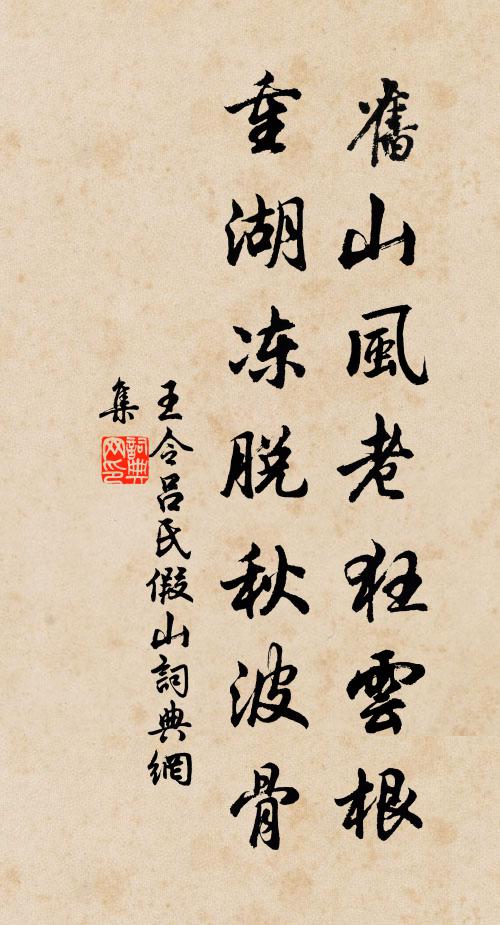 舊山風老狂雲根
重湖冻脱秋波骨
王令吕氏假山詞典網
集
詞典网印